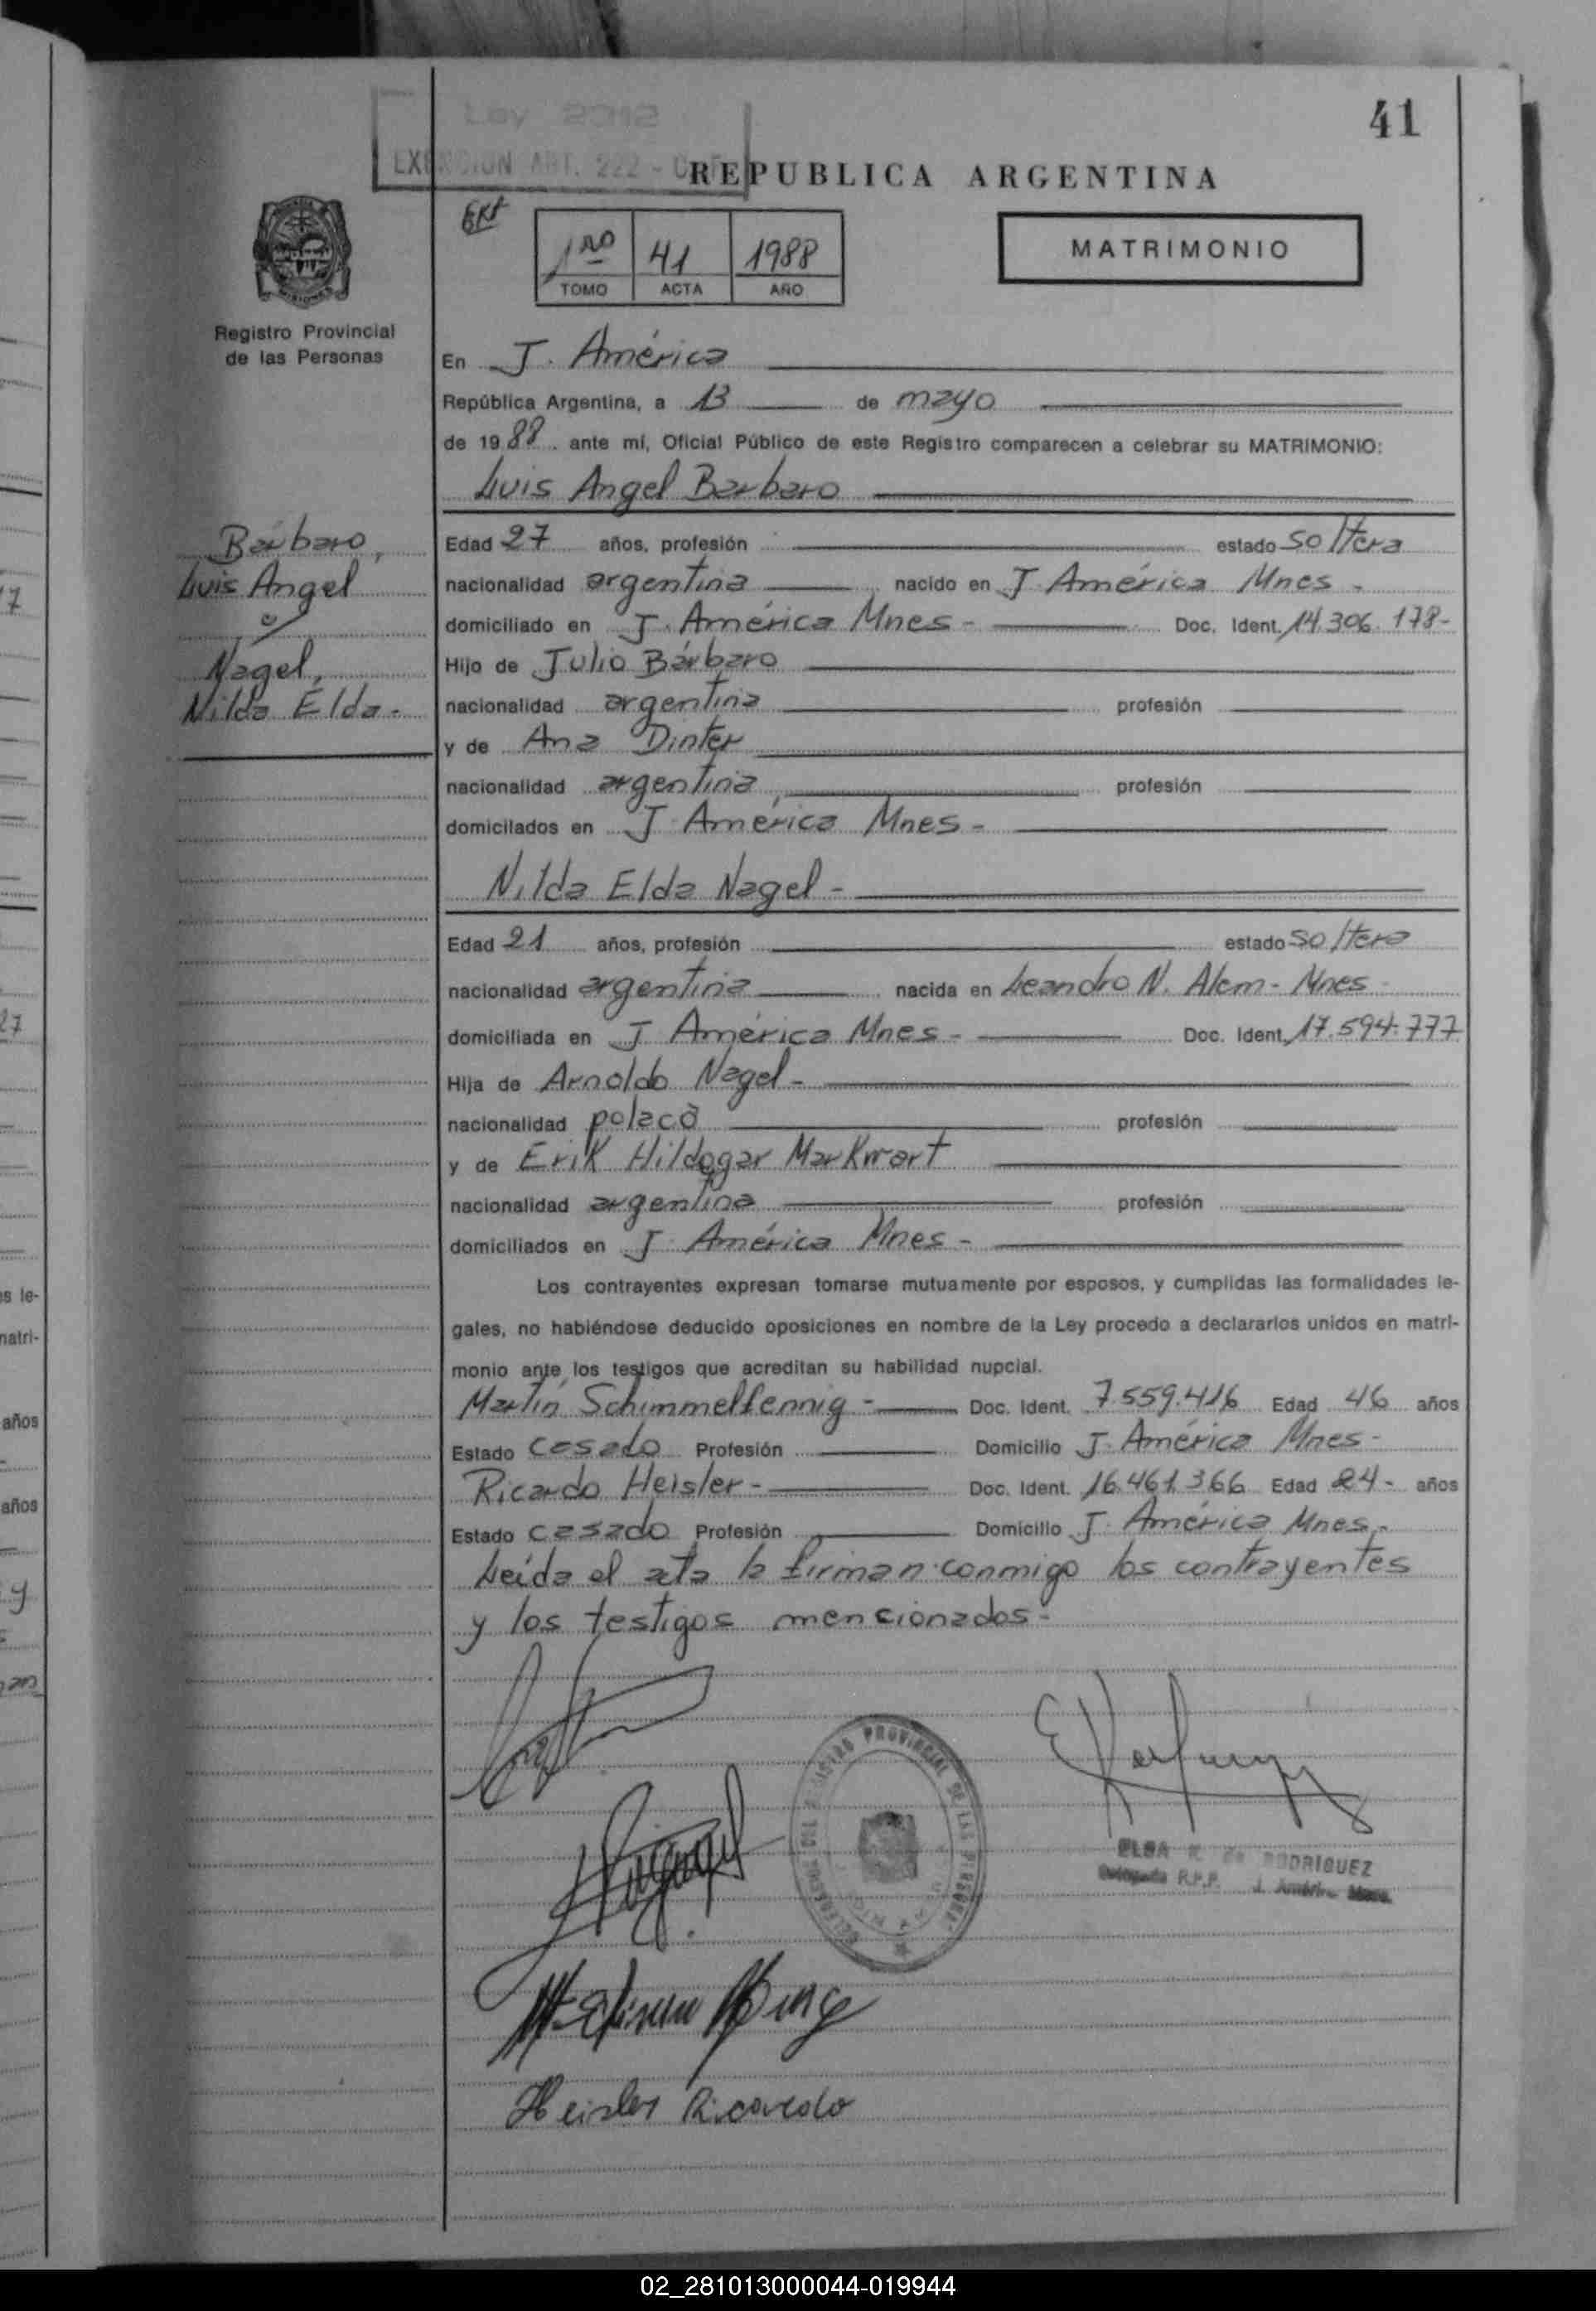 41
Ley 2012
EXENCION ART. 222 - C.F.
REPUBLICA ARGENTINA
1ro 41 1988
TOMO ACTA AÑO
MATRIMONIO
MISIONES
Registro Provincial
de las Personas
En J. América
República Argentina, a 13 de mayo
de 1988 ante mí, Oficial Público de este Registro comparecen a celebrar su MATRIMONIO:
Luis Angel Barbaro
Bárbaro,
Luis Angel
y
Nagel,
Nilda Elda.
Edad 27 años, profesión estado soltera
nacionalidad argentina nacido en J. América Mnes -
domiciliado en J. América Mnes - Doc. Ident. 14.306.178-
Hijo de Julio Bárbaro
nacionalidad argentina profesión
y de Ana Dinter
nacionalidad argentina profesión
domicilados en J. América Mnes -
Nilda Elda Nagel -
Edad 21 años, profesión estado soltera
nacionalidad argentina nacida en Leandro N. Alem - Mnes -
domiciliada en J América Mnes - Doc. Ident. 17.594.777
Hija de Arnoldo Nagel -
nacionalidad polaca profesión
y de Erik Hildegar Markwart
nacionalidad argentina profesión
domiciliados en J. América Mnes -
Los contrayentes expresan tomarse mutuamente por esposos, y cumplidas las formalidades le-
gales, no habiéndose deducido oposiciones en nombre de la Ley procedo a declararlos unidos en matri-
monio ante los testigos que acreditan su habilidad nupcial.
Martín Schimmelfennig - Doc. Ident. 7.559.416 Edad 46 años
Estado casado Profesión Domicilio J. América Mnes -
Ricardo Heisler - Doc. Ident. 16.461.366 Edad 24 - años
Estado casado Profesión Domicilio J. América Mnes -
Leída el ata la firman conmigo los contrayentes
y los testigos mencionados -
DEL REGISTRO PROVINCIAL DE LAS PERSONAS
ELSA K. de RODRIGUEZ
Delegada R.P.P. J. América Mnes.
Heisler Ricardo
7
27
s le-
matri-
años
años
y
02_281013000044-019944